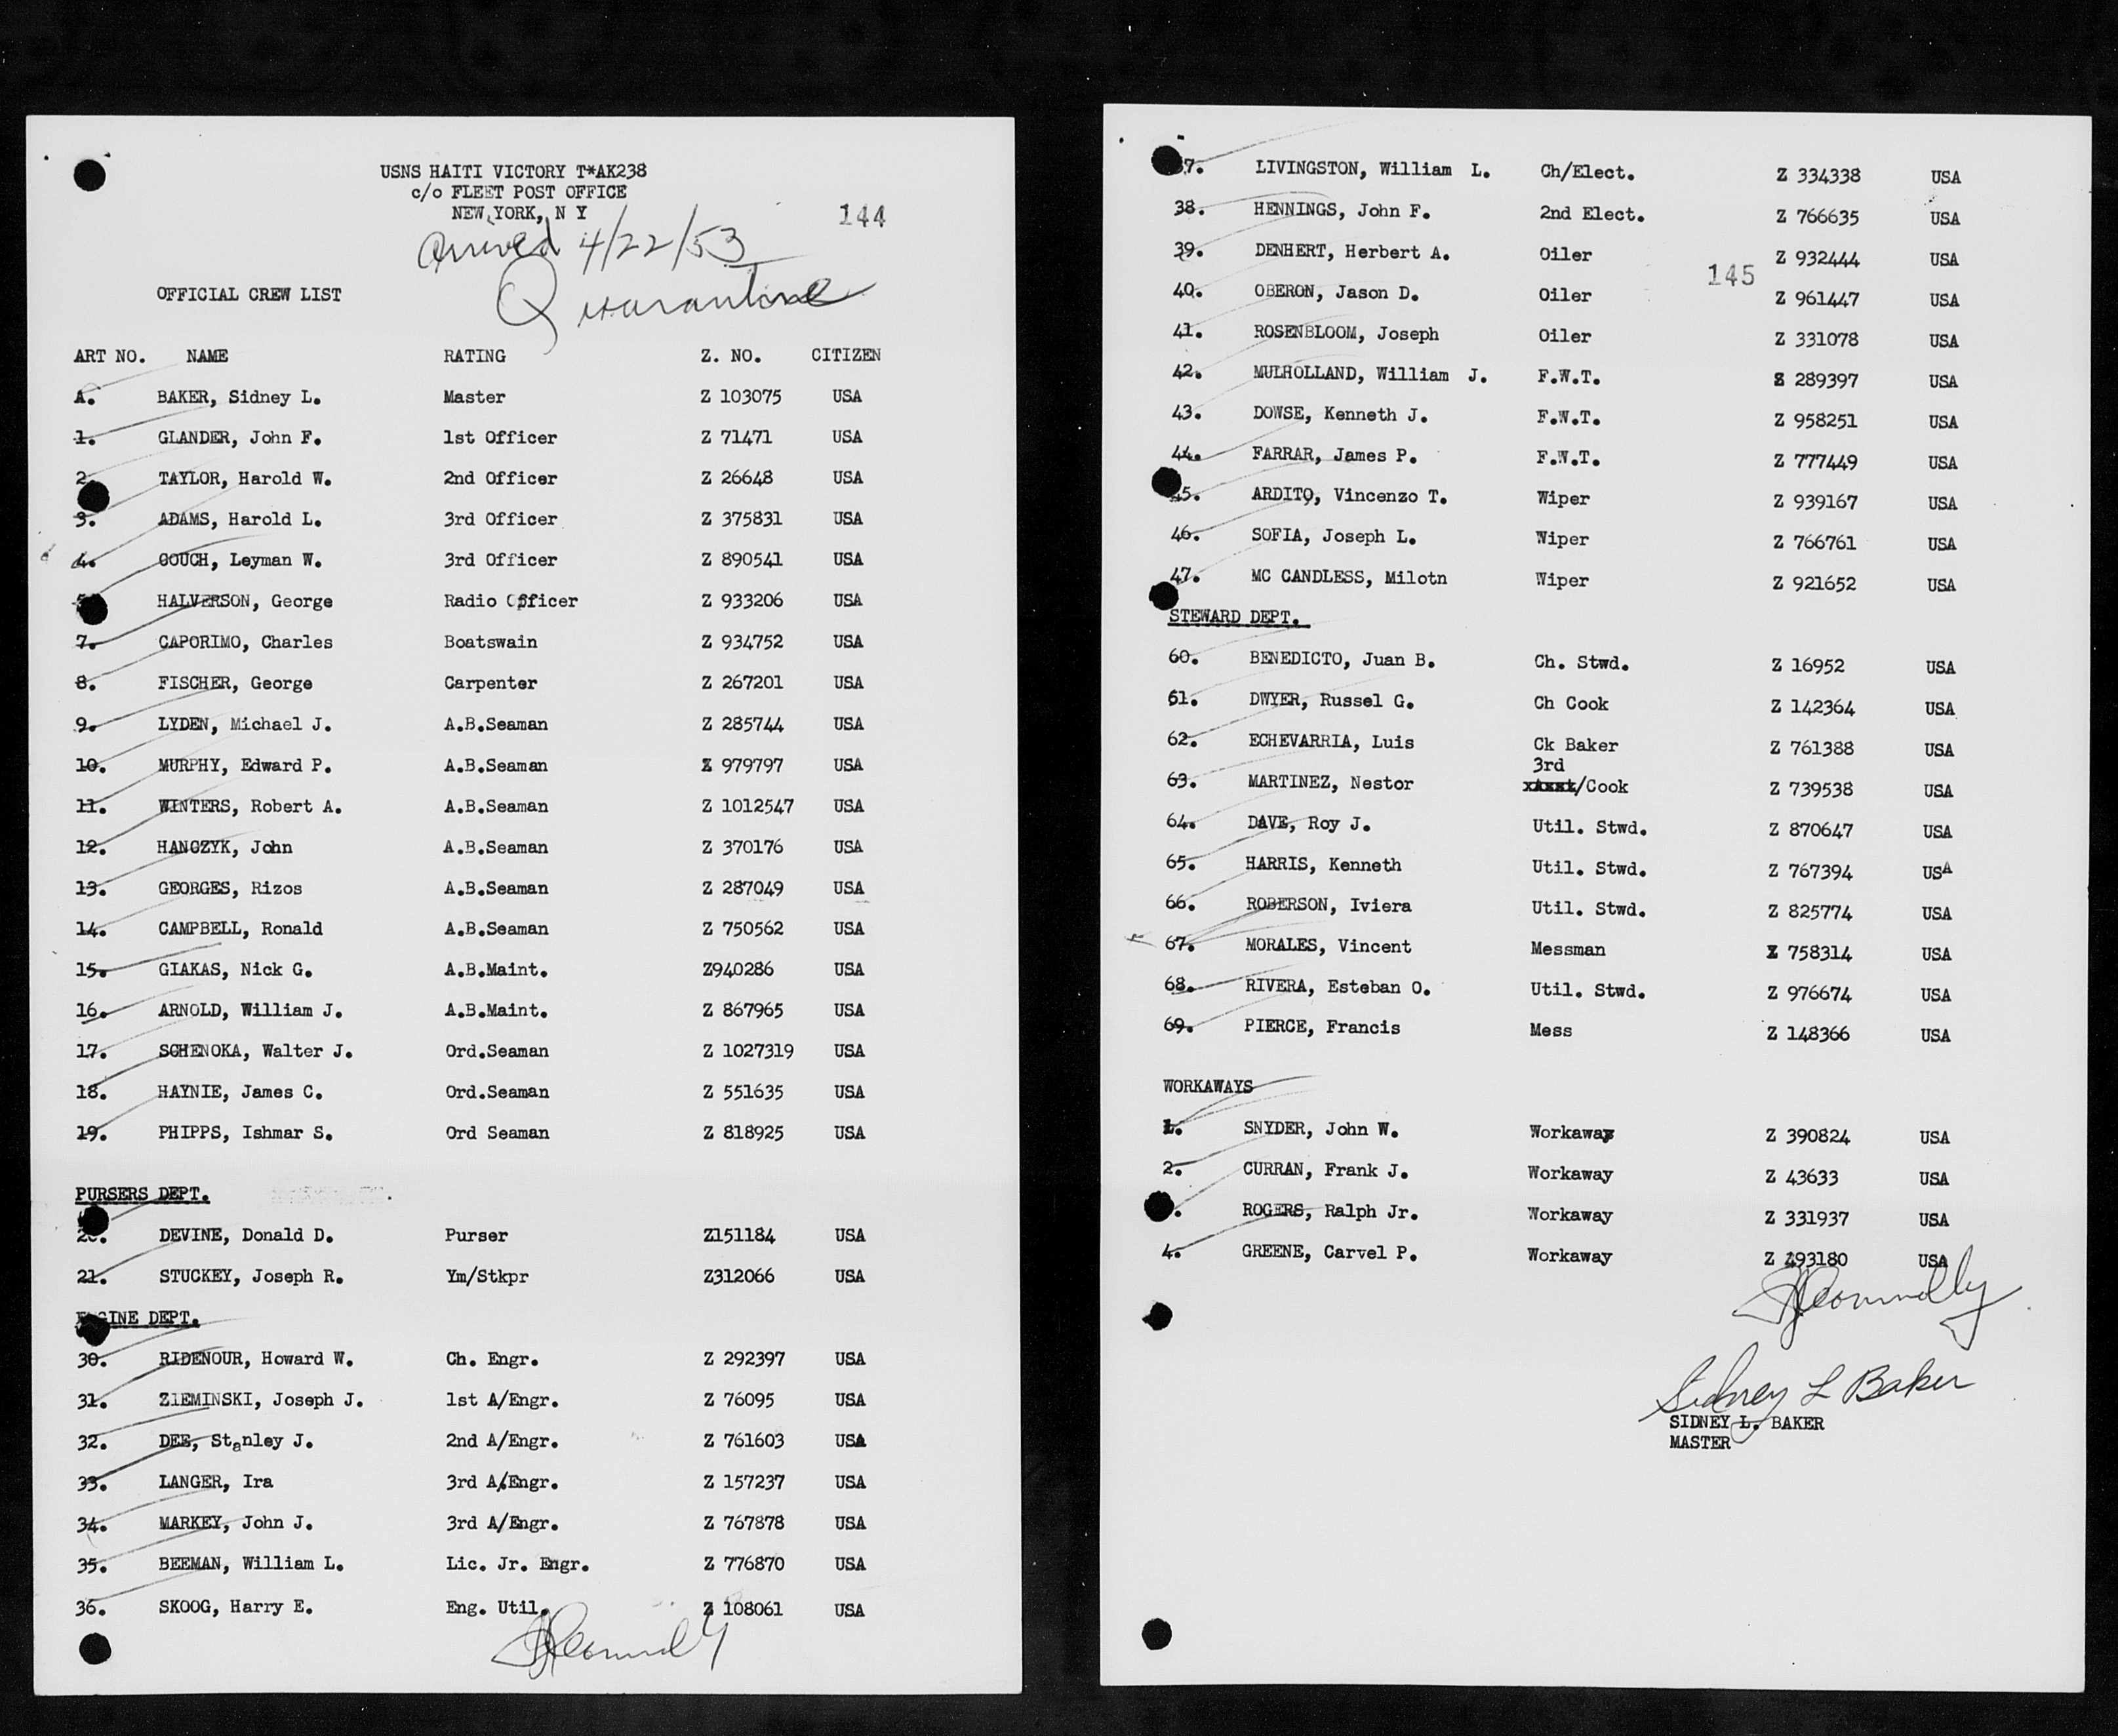 USNS HAITI VICTORY T*AK238
c/o FLEET POST OFFICE
NEW YORK, N Y
144
Arrived 4/22/53
Quarantine
OFFICIAL CREW LIST
ART NO. NAME RATING Z. NO. CITIZEN
A. BAKER, Sidney L. Master Z 103075 USA
1. GLANDER, John F. 1st Officer Z 71471 USA
2. TAYLOR, Harold W. 2nd Officer Z 26648 USA
3. ADAMS, Harold L. 3rd Officer Z 375831 USA
4. GOUCH, Leyman W. 3rd Officer Z 890541 USA
HALVERSON, George Radio Officer Z 933206 USA
7. CAPORIMO, Charles Boatswain Z 934752 USA
8. FISCHER, George Carpenter Z 267201 USA
9. LYDEN, Michael J. A.B.Seaman Z 285744 USA
10. MURPHY, Edward P. A.B.Seaman Z 979797 USA
11. WINTERS, Robert A. A.B.Seaman Z 1012547 USA
12. HANCZYK, John A.B.Seaman Z 370176 USA
13. GEORGES, Rizos A.B.Seaman Z 287049 USA
14. CAMPBELL, Ronald A.B.Seaman Z 750562 USA
15. GIAKAS, Nick G. A.B.Maint. Z940286 USA
16. ARNOLD, William J. A.B.Maint. Z 867965 USA
17. SCHENOKA, Walter J. Ord.Seaman Z 1027319 USA
18. HAYNIE, James C. Ord.Seaman Z 551635 USA
19. PHIPPS, Ishmar S. Ord Seaman Z 818925 USA
PURSERS DEPT.
20. DEVINE, Donald D. Purser Z151184 USA
21. STUCKEY, Joseph R. Ym/Stkpr Z312066 USA
ENGINE DEPT.
30. RIDENOUR, Howard W. Ch. Engr. Z 292397 USA
31. ZIEMINSKI, Joseph J. 1st A/Engr. Z 76095 USA
32. DEE, Stanley J. 2nd A/Engr. Z 761603 USA
33. LANGER, Ira 3rd A/Engr. Z 157237 USA
34. MARKEY, John J. 3rd A/Engr. Z 767878 USA
35. BEEMAN, William L. Lic. Jr. Engr. Z 776870 USA
36. SKOOG, Harry E. Eng. Util. Z 108061 USA
37. LIVINGSTON, William L. Ch/Elect. Z 334338 USA
38. HENNINGS, John F. 2nd Elect. Z 766635 USA
39. DENHERT, Herbert A. Oiler Z 932444 USA
145
40. OBERON, Jason D. Oiler Z 961447 USA
41. ROSENBLOOM, Joseph Oiler Z 331078 USA
42. MULHOLLAND, William J. F.W.T. Z 289397 USA
43. DOWSE, Kenneth J. F.W.T. Z 958251 USA
44. FARRAR, James P. F.W.T. Z 777449 USA
45. ARDITO, Vincenzo T. Wiper Z 939167 USA
46. SOFIA, Joseph L. Wiper Z 766761 USA
47. MC CANDLESS, Milotn Wiper Z 921652 USA
STEWARD DEPT.
60. BENEDICTO, Juan B. Ch. Stwd. Z 16952 USA
61. DWYER, Russel G. Ch Cook Z 142364 USA
62. ECHEVARRIA, Luis Ck Baker Z 761388 USA
3rd
63. MARTINEZ, Nestor /Cook Z 739538 USA
64. DAVE, Roy J. Util. Stwd. Z 870647 USA
65. HARRIS, Kenneth Util. Stwd. Z 767394 USA
66. ROBERSON, Iviera Util. Stwd. Z 825774 USA
67. MORALES, Vincent Messman Z 758314 USA
68. RIVERA, Esteban O. Util. Stwd. Z 976674 USA
69. PIERCE, Francis Mess Z 148366 USA
WORKAWAYS
1. SNYDER, John W. Workaway Z 390824 USA
2. CURRAN, Frank J. Workaway Z 43633 USA
ROGERS, Ralph Jr. Workaway Z 331937 USA
4. GREENE, Carvel P. Workaway Z 293180 USA
Sidney L Baker
SIDNEY L. BAKER
MASTER